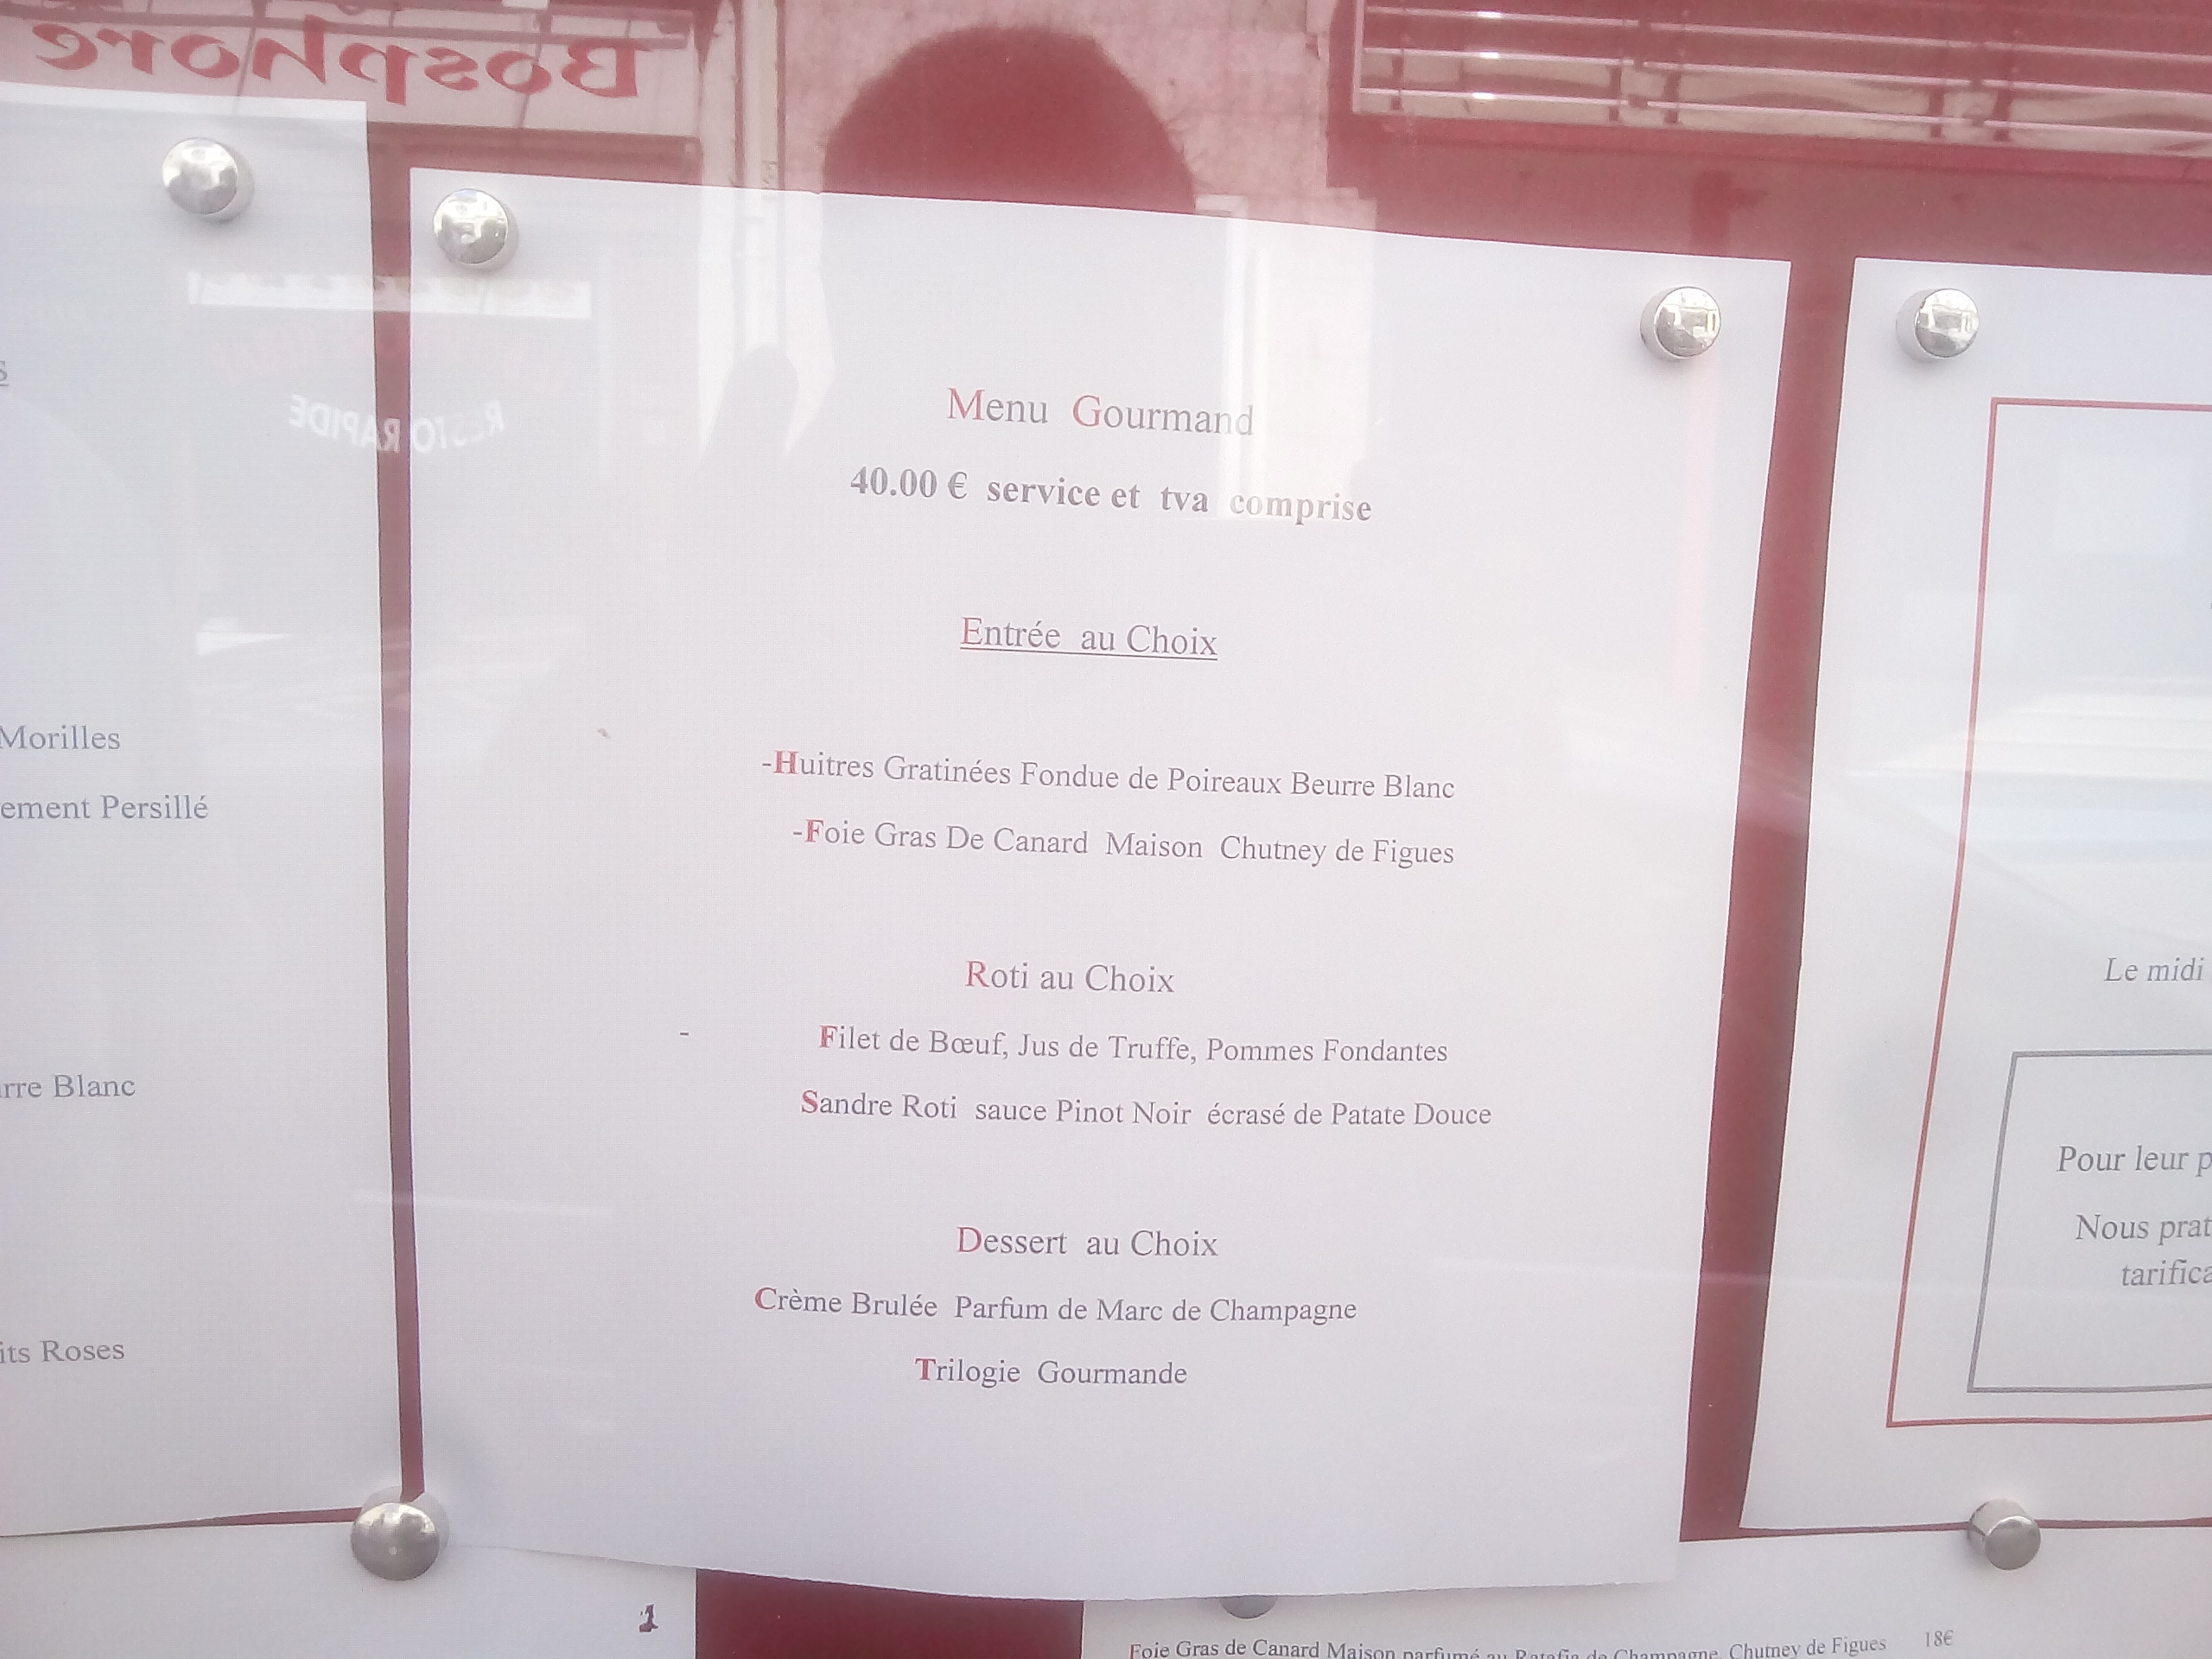 Bosphore
RESTO RAPIDE
s
Morilles
ement Persillé
rre Blanc
its Roses
Menu Gourmand
40.00 € service et tva comprise
Entrée au Choix
-Huitres Gratinées Fondue de Poireaux Beurre Blanc
-Foie Gras De Canard Maison Chutney de Figues
Roti au Choix
- Filet de Bœuf, Jus de Truffe, Pommes Fondantes
Sandre Roti sauce Pinot Noir écrasé de Patate Douce
Dessert au Choix
Crème Brulée Parfum de Marc de Champagne
Trilogie Gourmande
Le midi
Pour leur p
Nous prat
tarifica
1
Foie Gras de Canard Maison parfumé au Ratafia de Champagne, Chutney de Figues 18€